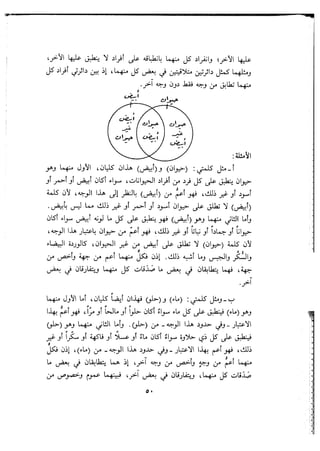 عليها الآخر، وانفراد كل منهما بانطباقه على أفراد لا ينطبق عليها الآخر،
ومثلهما كمثل دائرتين متلاقيتين في بعض كل منهما، إذ بين دائرتي أفراد كل
منهما تطابق من وجه فقط دون وجه آخر.
حيوان أبيض
حيوان غير أبيض
حيوان أبيض
أبيض غير حيوان
الأمثلة:
أ ـ مثل كلمتي: (حيوان) و (أبيض) هذان كليان، الأول منهما وهو
حيوان ينطبق على كل فرد من أفراد الحيوانات، سواء أكان أبيض أو أحمر أو
أسود أو غير ذلك، فهو أعم من (أبيض) بالنظر إلى هذا الوجه، لأن كلمة
(أبيض) لا تطلق على حيوان أسود أو أحمر أو غير ذلك مما ليس بأبيض.
وأما الثاني منهما وهو (أبيض) فهو ينطبق على كل ما لونه أبيض سواء أكان
حيواناً أو جماداً أو نباتاً أو غير ذلك، فهو أعم من حيوان باعتبار هذا الوجه،
لأن كلمة (حيوان) لا تطلق على أبيض من غير الحيوان، كالوردة البيضاء
والسكر والجبس وما أشبه ذلك. إذن فكل منهما أعم من جهة وأخص من
جهة، فهما يتطابقان في بعض ما صدقات كل منهما ويتفارقان في بعض
آخر.
ب ـ مثل كلمتي: (ماء) و (حلو) فهذان أيضاً كليان، أما الأول منهما
وهو (ماء) فينطبق على كل ماء سواء أكان حلواً أو مالحاً أو مراً، فهو أعم بهذا
الاعتبار ـ وفي حدود هذا الوجه ـ من (حلو). وأما الثاني منهما وهو (حلو)
فينطبق على كل ذي حلاوة سواء أكان ماءً أو عسلاً أو فاكهة أو سكراً أو غير
ذلك، فهو أعم بهذا الاعتبار ـ وفي حدود هذا الوجه ـ من (ماء)، إذن فكل
منهما أعم من وجه وأخص من وجه آخر، إذ هما يتطابقان في بعض ما
صدقات كل منهما، ويتفارقان في بعض آخر، فبينهما عموم وخصوص من
٥٠